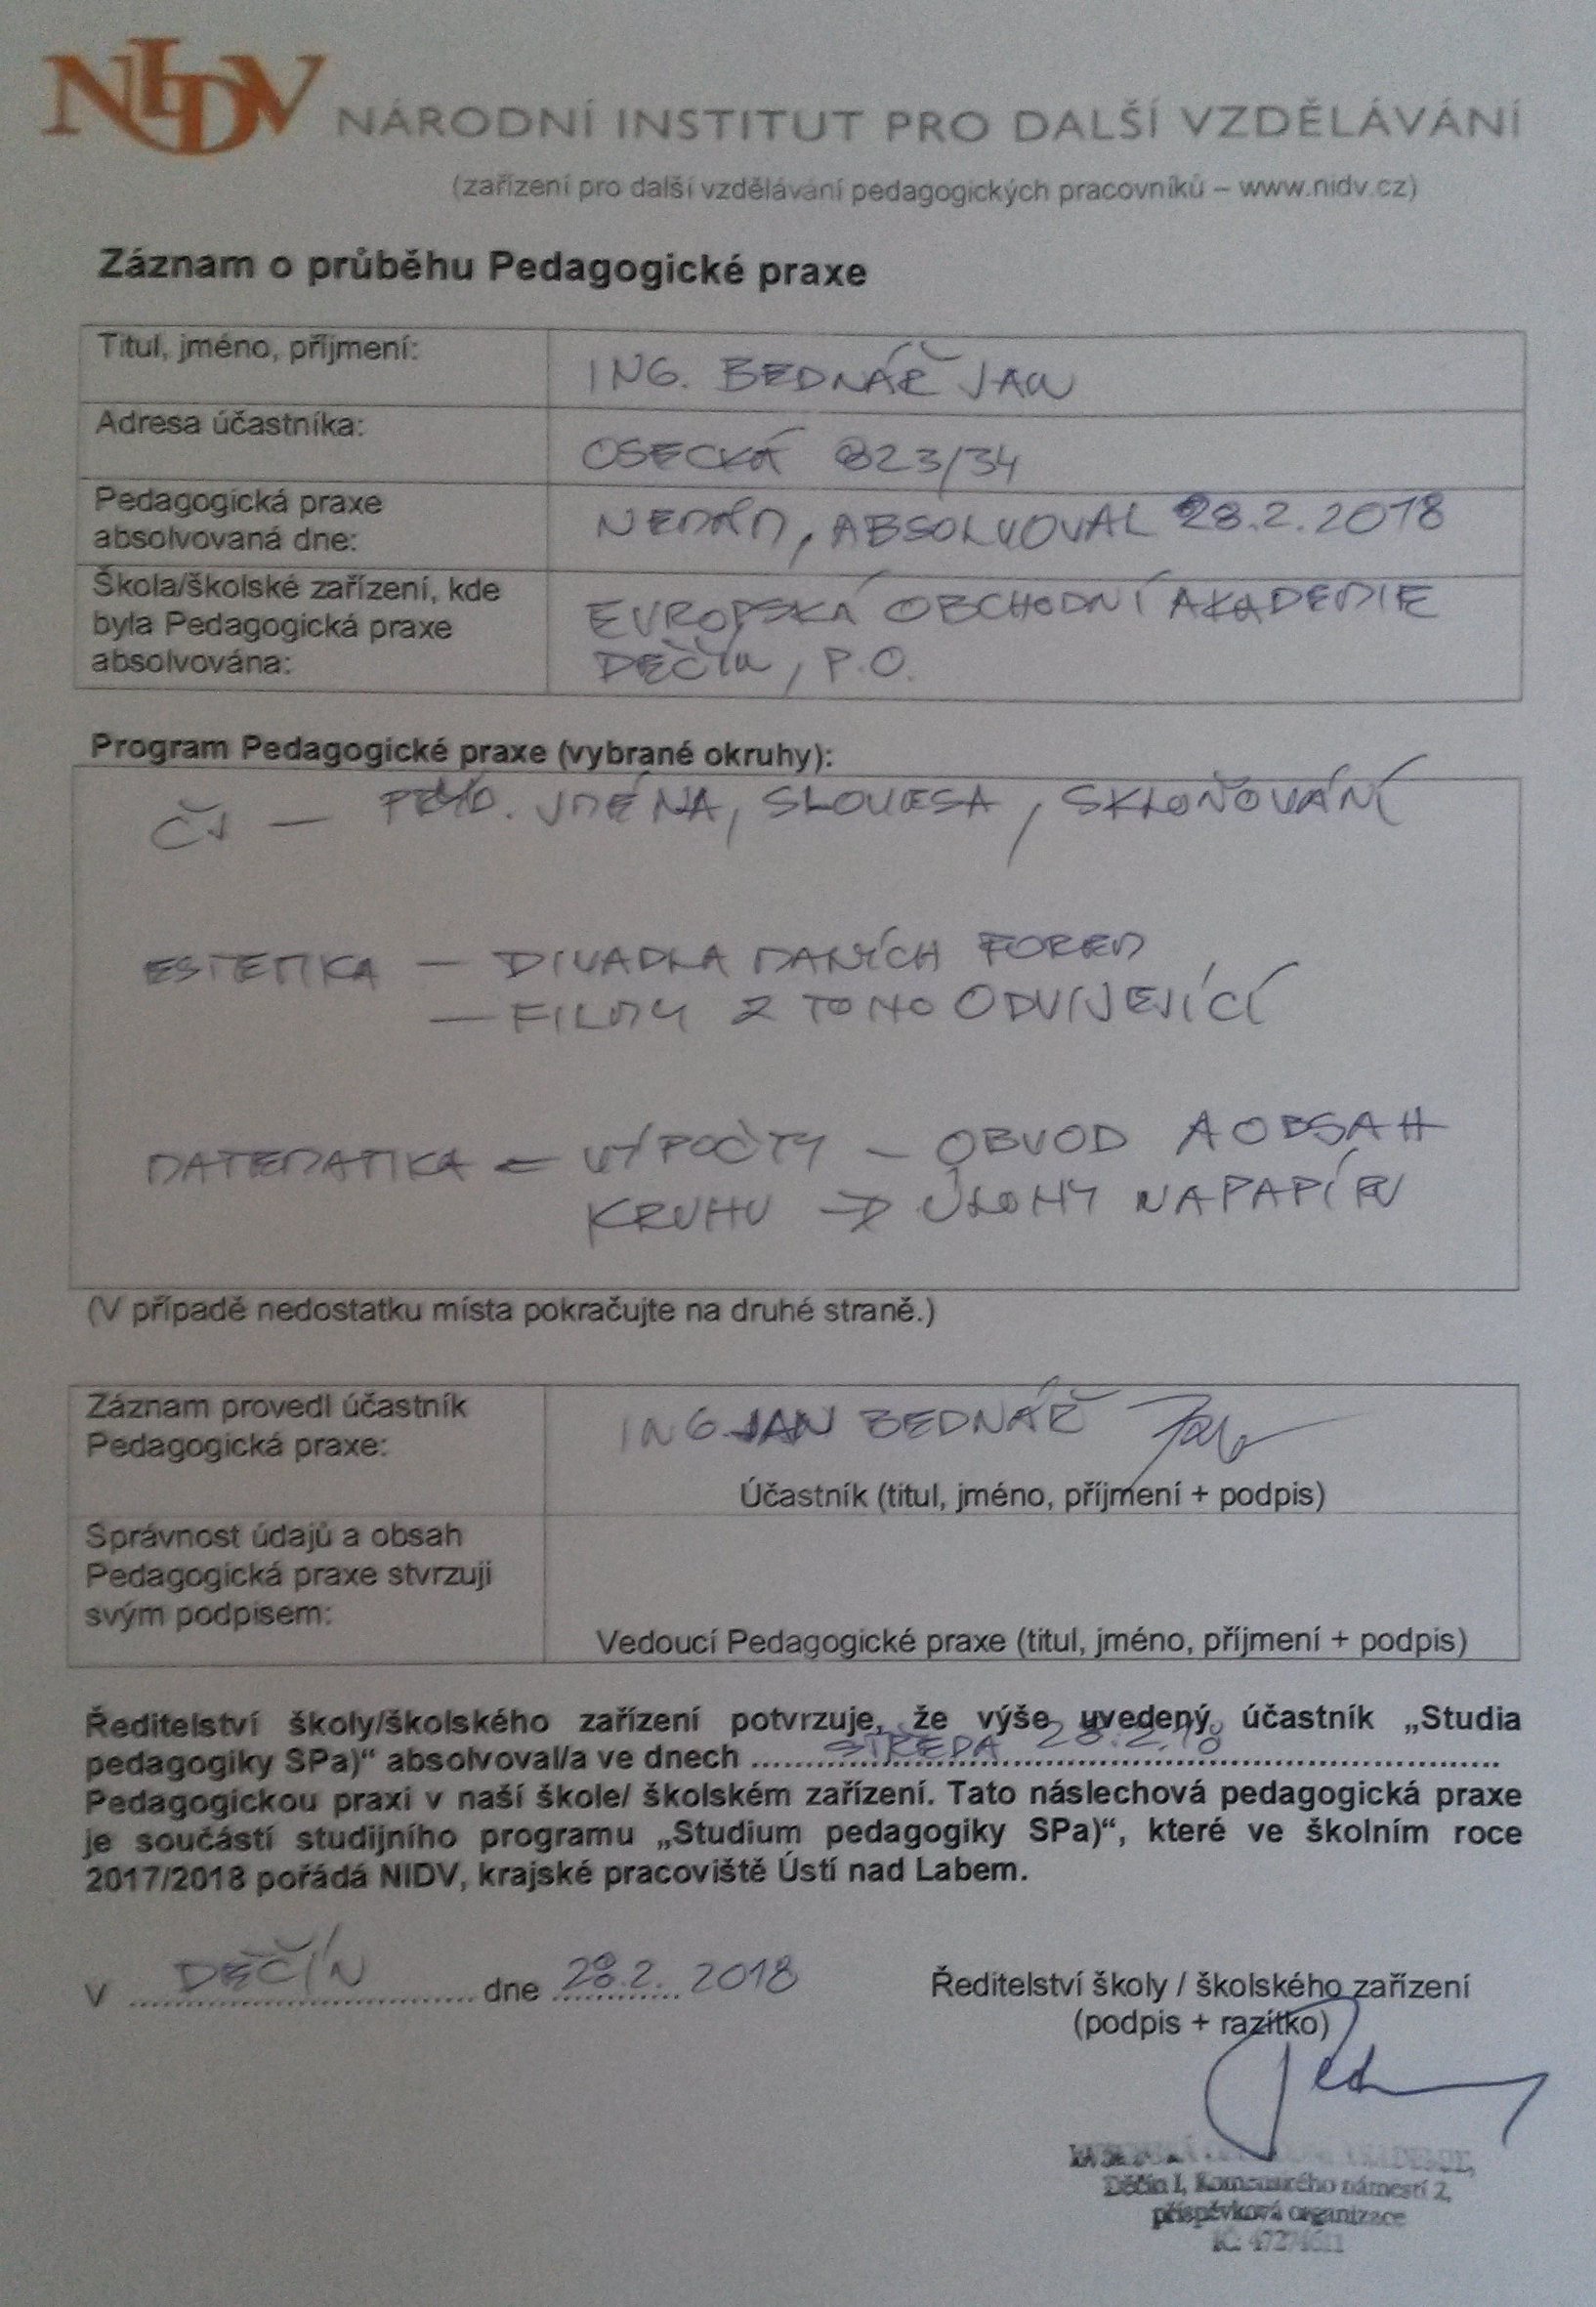 NIDV NÁRODNÍ INSTITUT PRO DALŠÍ VZDĚLÁVÁNÍ
(zařízení pro další vzdělávání pedagogických pracovníků – www.nidv.cz)
Záznam o průběhu Pedagogické praxe
Titul, jméno, příjmení:
ING. BEDNÁŘ JAN
Adresa účastníka:
OSECKÁ 823/34
Pedagogická praxe
absolvovaná dne:
NEMÁM, ABSOLVOVAL 28.2.2018
Škola/školské zařízení, kde
byla Pedagogická praxe
absolvována:
EVROPSKÁ OBCHODNÍ AKADEMIE
DĚČÍN, P.O.
Program Pedagogické praxe (vybrané okruhy):
ČJ — JMÉNA, SLOVESA, SKLOŇOVÁNÍ
ESTETIKA — DIVADLA DANÍCH FOREM
— FILMY Z TOHO ODVIJEJÍCÍ
MATEMATIKA = VÝPOČTY – OBVOD A OBSAH
KRUHU → ÚLOHY NA PAPÍRU
(V případě nedostatku místa pokračujte na druhé straně.)
Záznam provedl účastník
Pedagogická praxe:
ING. JAN BEDNÁŘ
Účastník (titul, jméno, příjmení + podpis)
Správnost údajů a obsah
Pedagogická praxe stvrzuji
svým podpisem:
Vedoucí Pedagogické praxe (titul, jméno, příjmení + podpis)
Ředitelství školy/školského zařízení potvrzuje, že výše uvedený účastník „Studia
pedagogiky SPa)“ absolvoval/a ve dnech STŘEDA 28.2.18
Pedagogickou praxi v naší škole/ školském zařízení. Tato náslechová pedagogická praxe
je součástí studijního programu „Studium pedagogiky SPa)“, které ve školním roce
2017/2018 pořádá NIDV, krajské pracoviště Ústí nad Labem.
V DĚČÍN dne 28.2. 2018
Ředitelství školy / školského zařízení
(podpis + razítko)
AKADEMIE,
Děčín I, Komenského náměstí 2,
příspěvková organizace
IČ: 47274611